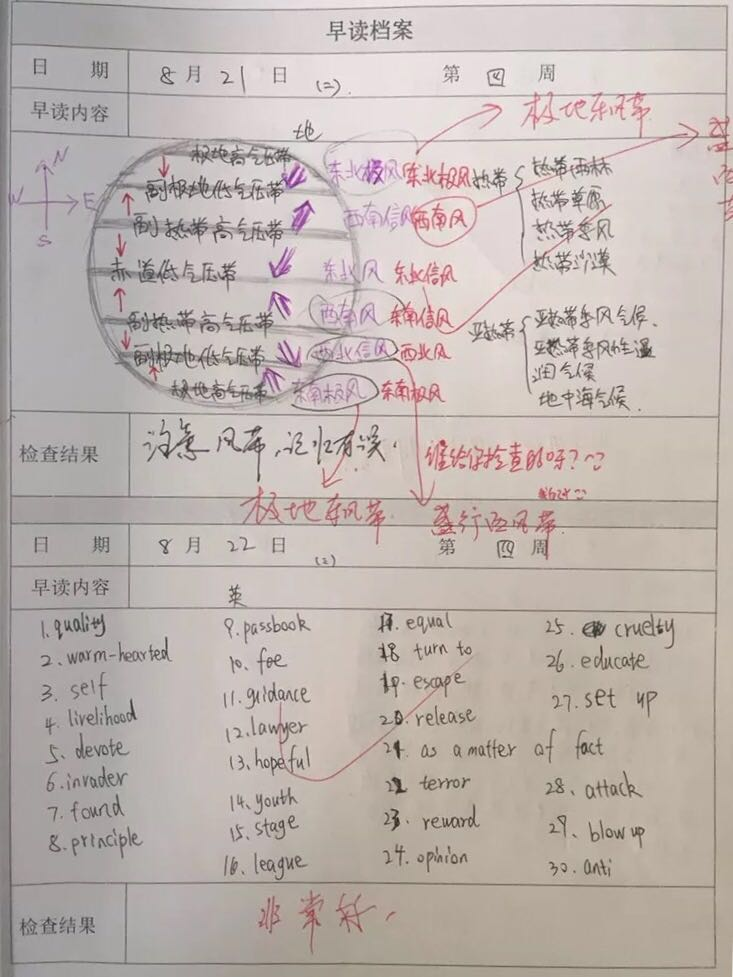 早读档案
日 期 8月21日 (二). 第 四 周
早读内容 地
极地东风带
N
W E
S
极地高气压带 东北极风 东北极风
副极地低气压带 西南信风 西南风
副热带高气压带
赤道低气压带 东北风 东北信风
副热带高气压带 西南风 东南信风
副极地低气压带 西北信风 西北风
极地高气压带 东南极风 东南极风
热带 热带雨林
热带草原
热带季风
热带沙漠
亚热带 亚热带季风气候、
亚热带季风性湿
润气候
地中海气候.
检查结果 注意风带,记忆有误. 谁给你检查的呀?
极地东风带 盛行西风带
日 期 8月22日 (三) 第 四 周
早读内容 英
1. quality
2. warm-hearted
3. self
4. livelihood
5. devote
6. invader
7. found
8. principle
9. passbook
10. foe
11. guidance
12. lawyer
13. hopeful
14. youth
15. stage
16. league
17. equal
18 turn to
19. escape
20. release
21. as a matter of fact
22 terror
23. reward
24. opinion
25. cruelty
26. educate
27. set up
28. attack
29. blow up
30. anti
检查结果 非常好.